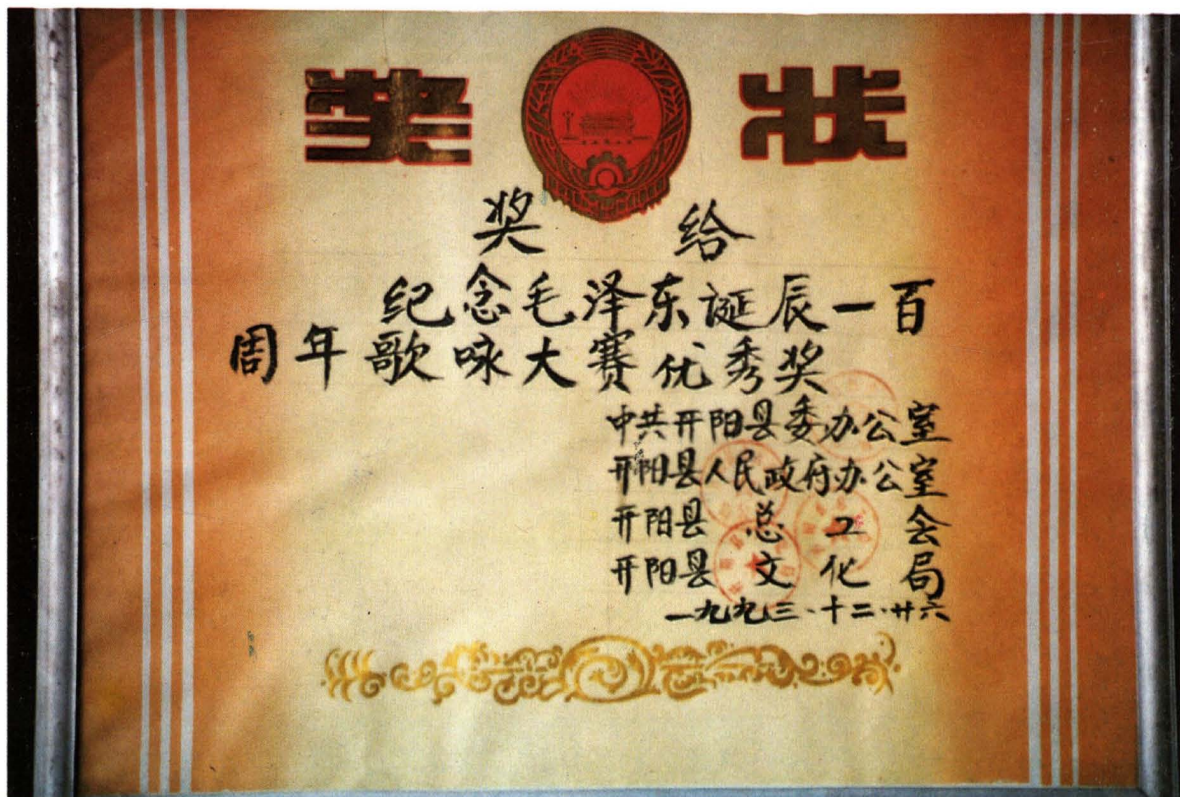 奖状
奖给
纪念毛泽东诞辰一百
周年歌咏大赛优秀奖
中共开阳县委办公室
开阳县人民政府办公室
开阳县总工会
开阳县文化局
一九九三·十二·廿六